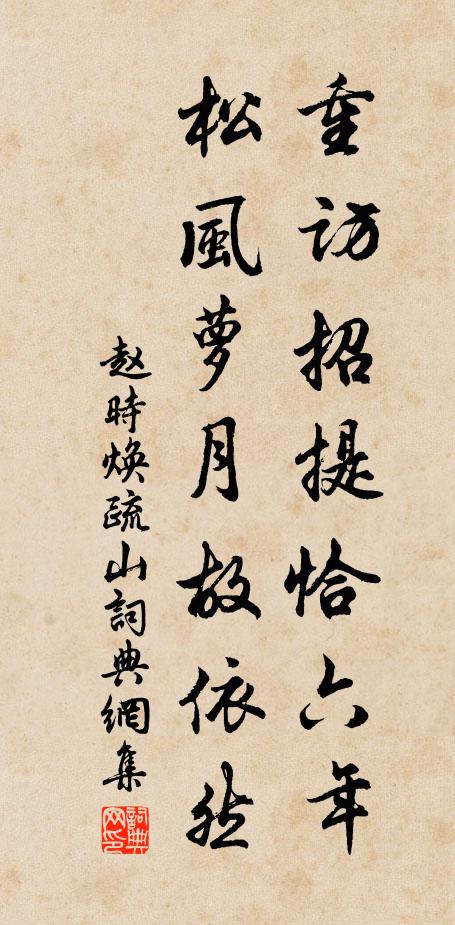 重访招提恰六年
松風萝月故依然
赵時焕疏山詞典網集
詞典网印